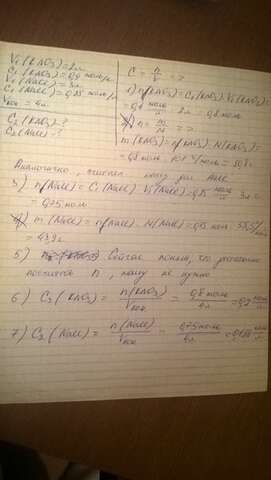 V₁(KNO₃)=2л.
C₁(KNO₃)=0,4 моль/л
V₁(NaCl)=3л.
C₁(NaCl)=0,25 моль/л
Vкон=4л.
C₂(KNO₃)-?
C₂(NaCl)-?
C = n/V = >
1) n(KNO₃)=C₁(KNO₃)·V₁(KNO₃)=
=0,4 моль/л · 2л = 0,8 моль.
n = m/M = >
m(KNO₃)=n(KNO₃)·M(KNO₃)=
Аналогично, считаем массу для NaCl
3) n(NaCl)=C₁(NaCl)·V₁(NaCl)=0,25 моль/л · 3л=
=0,75 моль
4) m(NaCl)=n(NaCl)·M(NaCl)=0,75 моль·58,5 г/моль
=43,9г
5) Сейчас понял, что достаточно
посчитать n, массу не нужно
6) C₂(KNO₃)= n(KNO₃)/Vкон = 0,8 моль/4л =0,2 моль/л
7) C₂(NaCl)= n(NaCl)/Vкон = 0,75 моль/4л =0,1875 моль/л